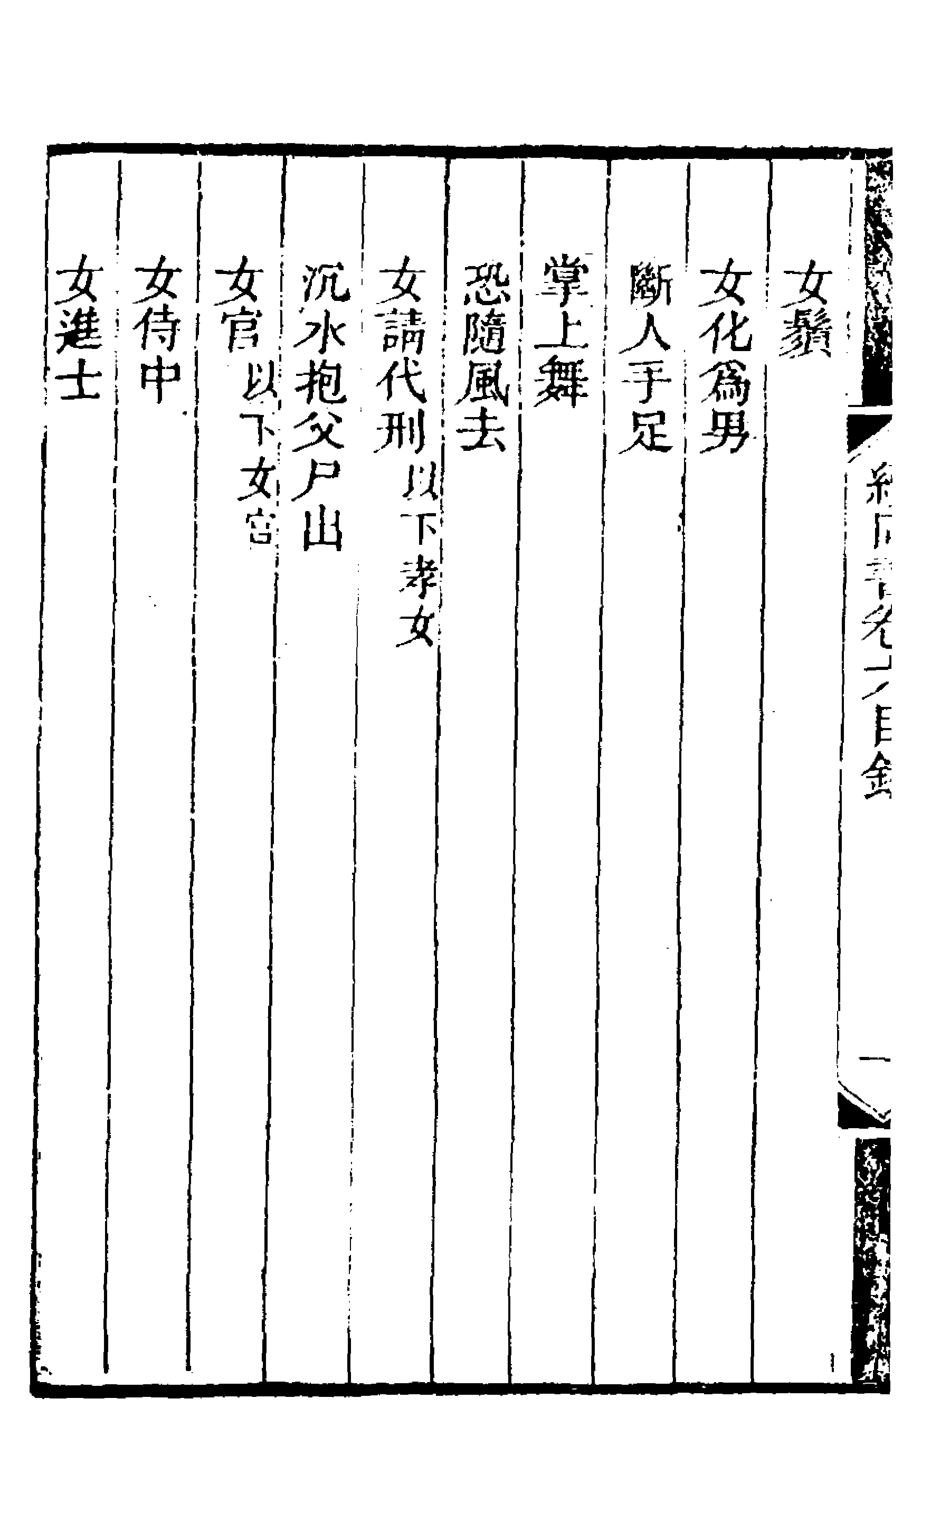 女鬚
女化爲男
斷人手足
掌上舞
恐隨風去
女請代刑以下孝女
沉水抱父尸出
女官以下女官
女侍中
女進士
卷六目錄
一